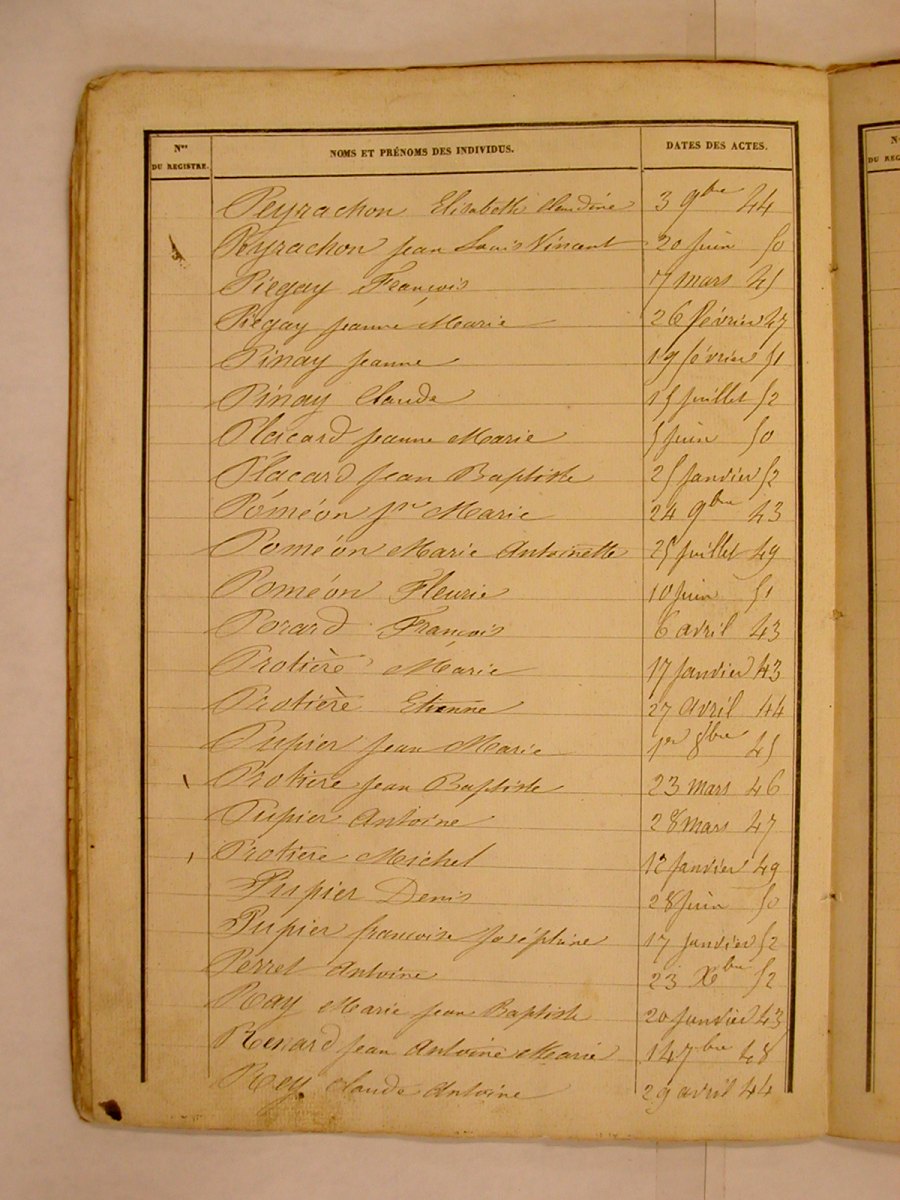 Nos DU REGISTRE. NOMS ET PRÉNOMS DES INDIVIDUS. DATES DES ACTES.
Peyrachon Elisabeth Claudine 3 9bre 44
Peyrachon Jean Louis Vincent 20 Juin 50
Piegay François 7 mars 45
Piegay Jeanne Marie 26 février 47
Pinay Jeanne 19 février 51
Pinay Claude 15 juillet 52
Placard Jeanne Marie 5 Juin 50
Placard Jean Baptiste 25 Janvier 52
Poméon Jne Marie 24 9bre 43
Poméon Marie Antoinette 25 juillet 49
Poméon Fleurie 10 Juin 51
Porard François 6 avril 43
Protière Marie 17 Janvier 43
Protière Etienne 27 Avril 44
Pupier Jean Marie 1er 8bre 45
Protière Jean Baptiste 23 mars 46
Pupier Antoine 28 mars 47
Protière Michel 12 Janvier 49
Pupier Denis 28 Juin 50
Pupier françoise Joséphine 17 Janvier 52
Perret Antoine 23 Xbre 52
Ray Marie Jean Baptiste 20 Janvier 43
Renard Jean Antoine Marie 14 7bre 48
Rey Claude Antoine 29 avril 44
N
DU REG